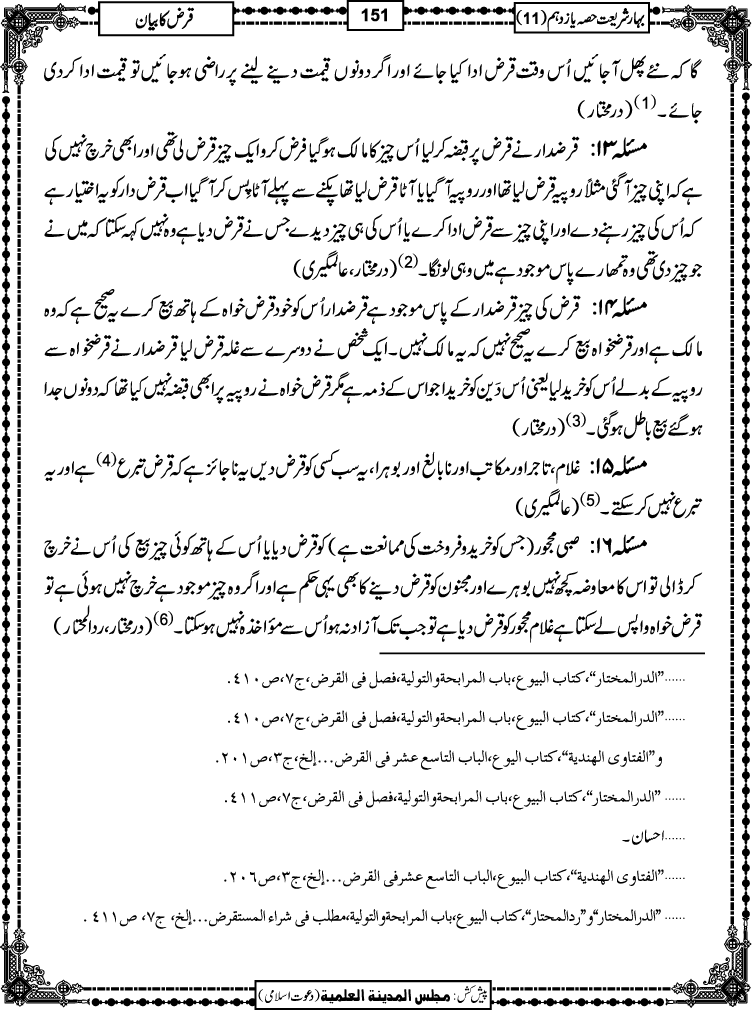 بہار شریعت حصہ یازدہم (11)
151
قرض کا بیان
گا کہ نئے پھل آجائیں اُس وقت قرض ادا کیا جائے اور اگر دونوں قیمت دینے لینے پر راضی ہوجائیں تو قیمت ادا کردی
جائے۔(1) (درمختار)
مسئلہ ۱۳: قرضدار نے قرض پر قبضہ کر لیا اُس چیز کا مالک ہوگیا فرض کرو ایک چیز قرض لی تھی اور ابھی خرچ نہیں کی
ہے کہ اپنی چیز آگئی مثلاً روپیہ قرض لیا تھا اور روپیہ آگیا یا آٹا قرض لیا تھا پکنے سے پہلے آٹا پِس کر آگیا اب قرض دار کو یہ اختیار ہے
کہ اُس کی چیز رہنے دے اور اپنی چیز سے قرض ادا کرے یا اُس کی ہی چیز دیدے جس نے قرض دیا ہے وہ نہیں کہہ سکتا کہ میں نے
جو چیز دی تھی وہ تمھارے پاس موجود ہے میں وہی لونگا۔(2) (درمختار، عالمگیری)
مسئلہ ۱۴: قرض کی چیز قرضدار کے پاس موجود ہے قرضدار اُس کو خود قرض خواہ کے ہاتھ بیع کرے یہ صحیح ہے کہ وہ
مالک ہے اور قرضخواہ بیع کرے یہ صحیح نہیں کہ یہ مالک نہیں۔ ایک شخص نے دوسرے سے غلہ قرض لیا قرضدار نے قرضخواہ سے
روپیہ کے بدلے اُس کو خرید لیا یعنی اُس دَین کو خریدا جو اس کے ذمہ ہے مگر قرض خواہ نے روپیہ پر ابھی قبضہ نہیں کیا تھا کہ دونوں جدا
ہوگئے بیع باطل ہوگئی۔(3) (درمختار)
مسئلہ ۱۵: غلام، تاجر اور مکاتب اور نابالغ اور بوہرا، یہ سب کسی کو قرض دیں یہ ناجائز ہے کہ قرض تبرع(4) ہے اور یہ
تبرع نہیں کر سکتے۔(5) (عالمگیری)
مسئلہ ۱۶: صبی مجور (جس کو خرید و فروخت کی ممانعت ہے) کو قرض دیا یا اُس کے ہاتھ کوئی چیز بیع کی اُس نے خرچ
کر ڈالی تو اس کا معاوضہ کچھ نہیں بوہرے اور مجنون کو قرض دینے کا بھی یہی حکم ہے اور اگر وہ چیز موجود ہے خرچ نہیں ہوئی ہے تو
قرض خواہ واپس لے سکتا ہے غلام مجور کو قرض دیا ہے تو جب تک آزاد نہ ہو اُس سے مؤاخذہ نہیں ہوسکتا۔(6) (درمختار، ردالمحتار)
......”الدرالمختار“، کتاب البیوع، باب المرابحةوالتولیة، فصل فی القرض، ج۷، ص۴۱۰.
......”الدرالمختار“، کتاب البیوع، باب المرابحةوالتولیة، فصل فی القرض، ج۷، ص۴۱۰.
و”الفتاوی الهندیة“، کتاب الیوع، الباب التاسع عشر فی القرض...إلخ، ج۳، ص۲۰۱.
...... ”الدرالمختار“، کتاب البیوع، باب المرابحةوالتولیة، فصل فی القرض، ج۷، ص۴۱۱.
......احسان۔
......”الفتاوی الهندیة“، کتاب البیوع، الباب التاسع عشرفی القرض...إلخ، ج۳، ص۲۰۶.
...... ”الدرالمختار“و”ردالمحتار“، کتاب البیوع، باب المرابحةوالتولیة، مطلب فی شراء المستقرض...إلخ، ج۷، ص۴۱۱.
پیش کش: مجلس المدینة العلمیة (دعوت اسلامی)